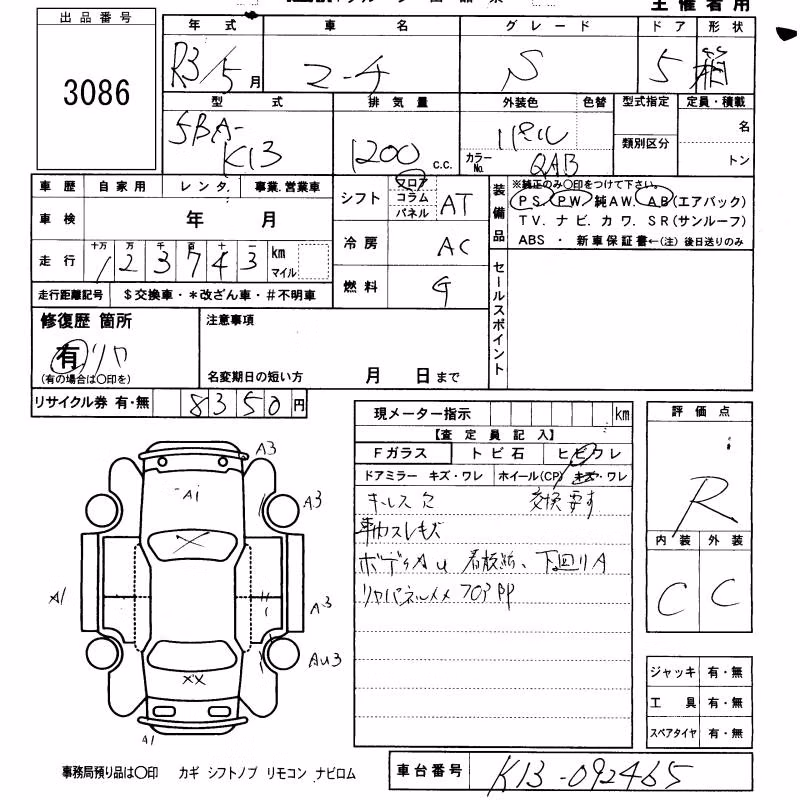 主催者用
出品番号
3086
年式 車名 グレード ドア 形状
R3/5月 マーチ S 5 箱
型式 排気量 外装色 色替 型式指定 定員・積載
5BA-K13 1200 c.c. パール カラーNo. QAB 類別区分 名 トン
車歴 自家用 レンタ. 事業.営業車
シフト フロア コラム パネル AT
装備品
※純正のみ〇印をつけて下さい。
PS PW 純AW. AB(エアバック)
TV. ナビ. カワ. SR(サンルーフ)
ABS ・ 新車保証書←(注) 後日送りのみ
車検 年 月
冷房 AC
走行 十万 万 千 百 十 一 km マイル
1 2 3 7 4 3
燃料 G
セールスポイント
走行距離記号 $交換車・*改ざん車・#不明車
修復歴 箇所
有 リア
(有の場合は〇印を)
注意事項
名変期日の短い方 月 日まで
リサイクル券 有・無 8350円
現メーター指示 km
【査定員記入】
Fガラス トビ石 ヒビワレ
ドアミラー キズ・ワレ ホイール(CP) キズ・ワレ
キーレス欠 交換要す
車内スレキズ
ボディAU 看板跡、下廻りA
リヤパネルメメ フロアPP
評価点
R
内装 外装
C C
A3
A1
A3
A1
A3
XX
AU3
A1
ジャッキ 有・無
工具 有・無
スペアタイヤ 有・無
事務局預り品は〇印 カギ シフトノブ リモコン ナビロム
車台番号 K13-092465